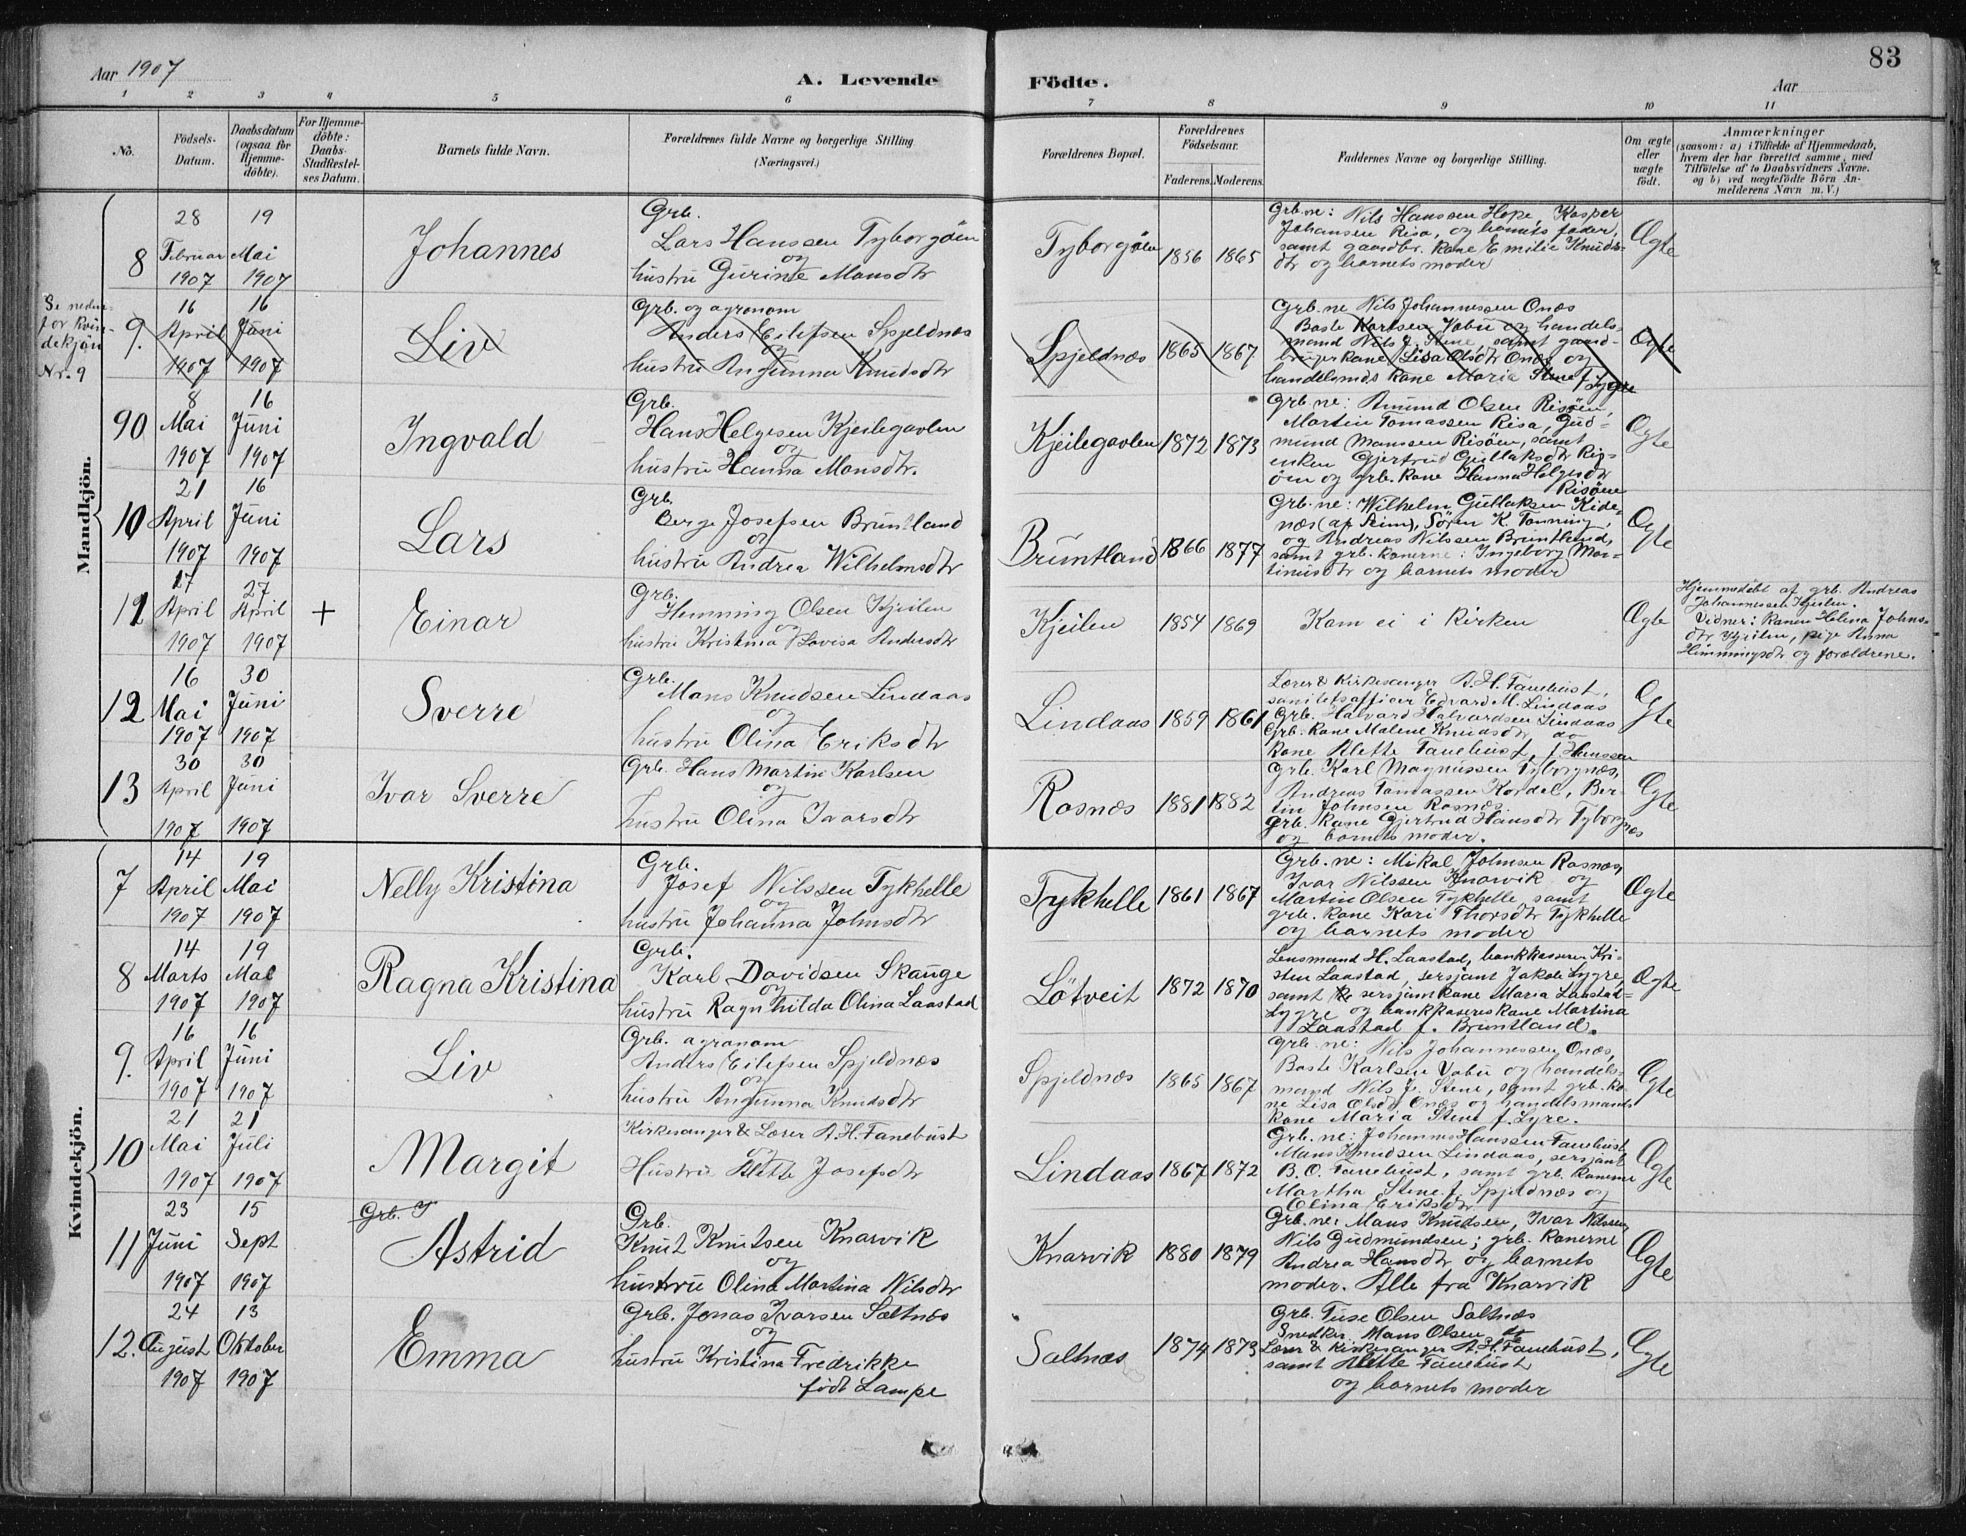 83
Aar 1907
A. Levende
Födte.
Aar
1 2 3 4 5 6 7 8 9 10 11
No.
Födsels-
Datum.
Daabsdatum
(ogsaa for
Hjemme-
döbte).
For Hjemme-
döbte:
Daabs-
Stadfæstel-
ses Datum.
Barnets fulde Navn.
Forældrenes fulde Navne og borgerlige Stilling
(Næringsvei.)
Forældrenes Bopæl.
Forældrenes
Födselsaar.
Faderens. Moderens.
Faddernes Navne og borgerlige Stilling.
Om ægte
eller
uægte
födt.
Anmærkninger
(saasom: a) i Tilfælde af Hjemmedaab,
hvem der har forrettet samme, med
Tilföielse af to Daabsvidners Navne.
og b) ved uægtefödte Börn An-
melderens Navn m. V.)
Mandkjön.
8
28
Februar
1907
19
Mai
1907
Johannes
Grb.
Lars Hanssen Tyborgöen
og
hustru Gurine Monsdtr
Tyborgöen
1856
1865
Grb.ne: Nils Hanssen Hope, Kasper
Johansen Risa, og barnets fader,
samt gaardbr. kone Emilie Knuds-
dtr og barnets moder
Ægte
Se neden-
for Kvin-
dekjön
Nr. 9
9.
16
April
1907
16
Juni
1907
Liv
Grb. og agronom
Anders Eilefsen Spjeldnæs
og
hustru Angunna Knudsdtr
Spjeldnæs
1865
1867
Grb.ne Nils Johannessen Onæs
Baste Karlsen Vabü og handels-
mand Nils J. Stene, samt gaard-
brugerkone Lisa Olsdtr Onæs og
handelsmds kone Maria Stene f. Lygre
Ægte
90
8
Mai
1907
16
Juni
1907
Ingvald
Grb.
Hans Helgesen Kjeilegavlen
og
hustru Hanna Monsdtr.
Kjeilegavlen
1872
1873
Grb.ne: Amund Olsen Risöen,
Martin Tomassen Risa, Gud-
mund Monssen Risöen, samt
enken Gjertrud Gullaksdtr Ris-
öen og grb. kone Hanna Helgesdtr
Risöen
Ægte
10
21
April
1907
16
Juni
1907
Lars
Grb.
Berge Josefsen Bruntland
og
hustru Andrea Wilhelmsdtr
Bruntland
1866
1877
Grb.ne: Wilhelm Gullaksen Kide-
næs (af Seim), Sören K. Tonning,
og Andreas Nilssen Bruntland,
samt grb. konerne: Ingeborg Mar-
tinusdtr og barnets moder
Ægte
11
17
April
1907
27
April
1907
+
Einar
Grb.
Hemming Olsen Kjeilen
og
hustru Kristina Lovisa Andersdtr
Kjeilen
1854
1869
Kom ei i kirken
Ægte
Hjemmedöbt af grb. Andreas
Johannessen Kjeilen.
Vidner: Konen Helena Johns-
dtr Kjeilen, pige Anna
Hemmingsdtr og forældrene.
12
16
Mai
1907
30
Juni
1907
Sverre
Grb.
Mons Knudsen Lindaas
og
hustru Olina Eriksdtr
Lindaas
1859
1861
Lærer & kirkesanger A. H. Fanebust,
sanitetsofficer Edvard M. Lindaas
Grb. Halvard Halvardsen Lindaas
Grb. kone Malene Knudsdtr do
kone Alette Fanebust, f. Hanssen
Ægte
13
30
April
1907
30
Juni
1907
Ivar Sverre
Grb. Hans Martin Karlsen
og
hustru Olina Ivarsdtr
Rosnæs
1881
1882
Grb. Karl Magnussen Tyborgnæs,
Andreas Tomassen Kordel, Ber-
tin Johnsen Rosnæs.
Grb. kone Gjertrud Hansdtr Tyborgnæs
og barnets moder.
Ægte
Kvindekjön.
7
14
April
1907
19
Mai
1907
Nelly Kristina
Grb.
Josef Nilssen Tykhelle
og
hustru Johanna Johnsdtr
Tykhelle
1861
1867
Grb.ne: Mikal Johnsen Rosnæs,
Ivar Nilssen Knarvik og
Martin Olsen Tykhelle samt
grb. kone Kari Thorsdtr Tykhelle
og barnets moder
Ægte
8
14
Marts
1907
19
Mai
1907
Ragna Kristina
Grb.
Karl Davidsen Skauge
og
hustru Ragnhilda Olina Laastad
Lötveit
1872
1870
Lensmand H. Laastad, bankkasserer Kri-
sten Laastad, sersjant Jakob Lygre,
samt sersjantkone Maria Laastad-
Lygre og bankkassereskone Martina
Laastad f. Bruntland.
Ægte
9.
16
April
1907
16
Juni
1907
Liv
Grb. agronom
Anders Eilefsen Spjeldnæs
og
hustru Angunna Knudsdtr
Spjeldnæs
1865
1867
Grb.ne: Nils Johannessen Onæs,
Baste Karlsen Vabü og handels-
mand Nils J. Stene, samt grb. ko-
ne Lisa Olsdtr Onæs og handelsmands
kone Maria Stene f. Lygre.
Ægte
10
21
Mai
1907
21
Juli
1907
Margit
Kirkesanger & Lærer A. H. Fanebust
og
Hustru Alette Josefsdtr
Lindaas
1867
1872
Grb.ne: Johannes Hanssen Fanebust
Mons Knudsen Lindaas, sersjant
B. O. Fanebust, samt grb. konerne
Martha Stene f. Spjeldnæs og
Olina Eriksdtr
Ægte
11
23
Juni
1907
15
Sept
1907
Grb. T
Astrid
Grb.
Knut Knutsen Knarvik
og
hustru Olina Martina Nilsdtr
Knarvik
1880
1879
Grb.ne: Mons Knudsen, Ivar Nilssen,
Nils Gudmundsen; grb. konerne
Andrea Hansdtr og barnets
moder. Alle fra Knarvik
Ægte
12.
24
August
1907
13
Oktober
1907
Emma
Grb. Jonas Ivarsen Saltnæs
og
hustru Kristina Fredrikke
född Lampe
Saltnæs
1874
1873
Grb. Tuse Olsen Saltnæs
Snedker Mons Olsen do
Lærer & Kirkesanger A. H. Fanebust,
samt Alette Fanebust
og barnets moder
Ægte